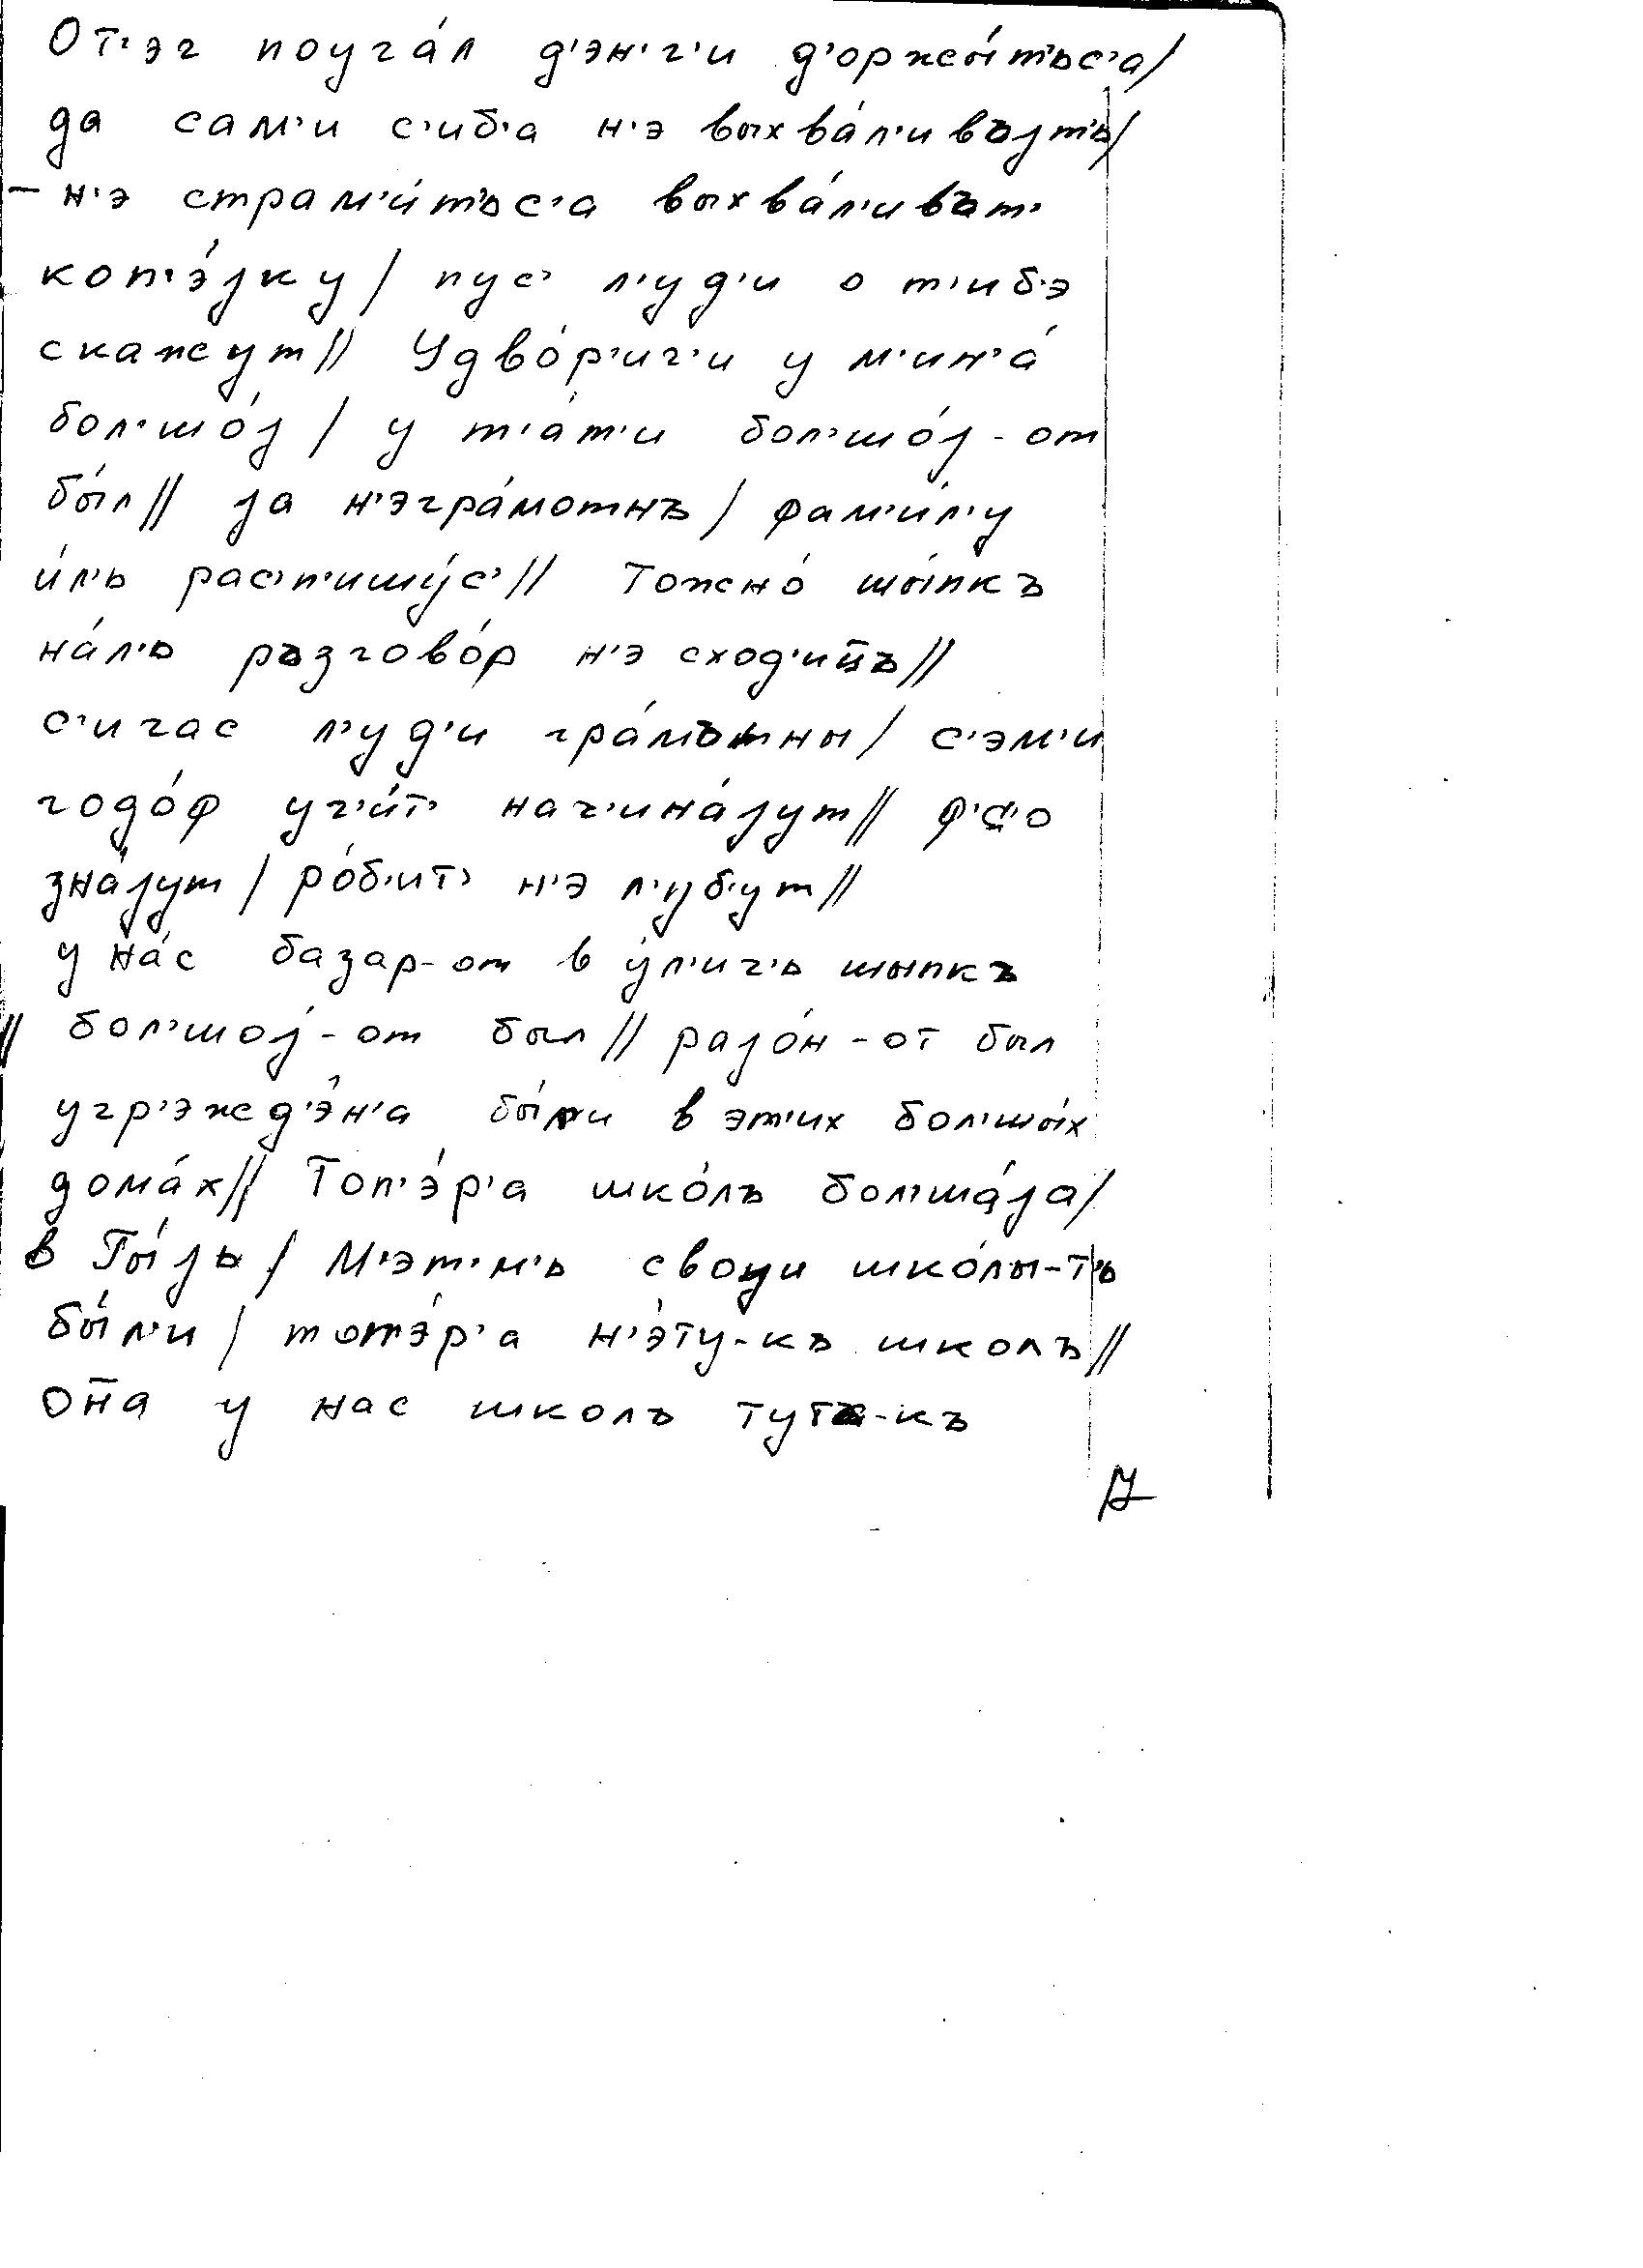 От'эч поуча́л д'эн'г'и д'оржы́т'ьс'а/
да сам'и с'иб'а н'э выхва́л'ивъјт'ь/
– н'э страм'и́т'ьс'а выхва́л'иват'
коп'э́јку / пус' л'уд'и о т'иб'э
скажут // Удво́р'ич'и у м'ин'а́
бол'шо́ј / у т'а́т'и бол'шо́ј-от
бы́л // ја н'эгра́мотнъ / фам'и́л'у
и́л'ь рас'п'ишу́с' // Тожно́ шы́пкъ
на́л'ь ръзгово́р н'э сход'ит̄ъ //
с'ичас л'уд'и гра́мътны / с'эм'и
годо́ф уч'и́т' нач'ина́јут // ф'с'о
зна́јут / ро́б'ит' н'э л'уб'ут //
у на́с базар-от в у́л'ич'ь шыпкъ
// бол'шој-от был // рајо́н-от был
учр'эжд'э́н'а бы́ли в эт'их бол'шы́х
дома́х // Топ'э́р'а шко́лъ бол'ша́ја /
в Гы́јь / М'эт'н'ь свој̄и шко́лы-т'ь
бы́л'и / топ'э́р'а н'э́ту-къ школъ //
он̄а у нас школъ тутъ-къ